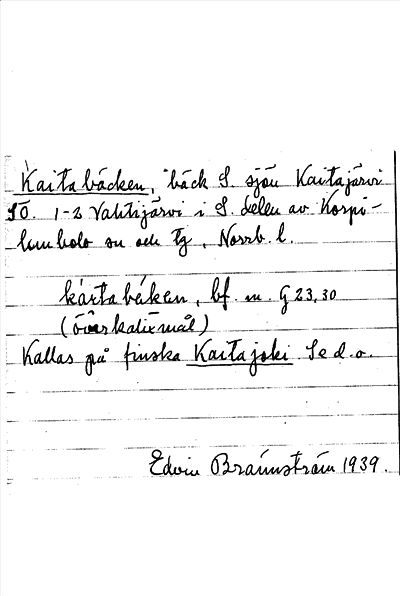 Kaitabäcken, bäck S. sjön Kaitajärvi
SÖ. 1-2 Vahtijärvi i S. delen av Korpi-
lombolo sn och tg, Norrb. l.
kàrtabäken, bf. m. G 23,30
(överkalixmål)
Kallas på finska Kaitajoki. Se d. o.
Edvin Brännström 1939.